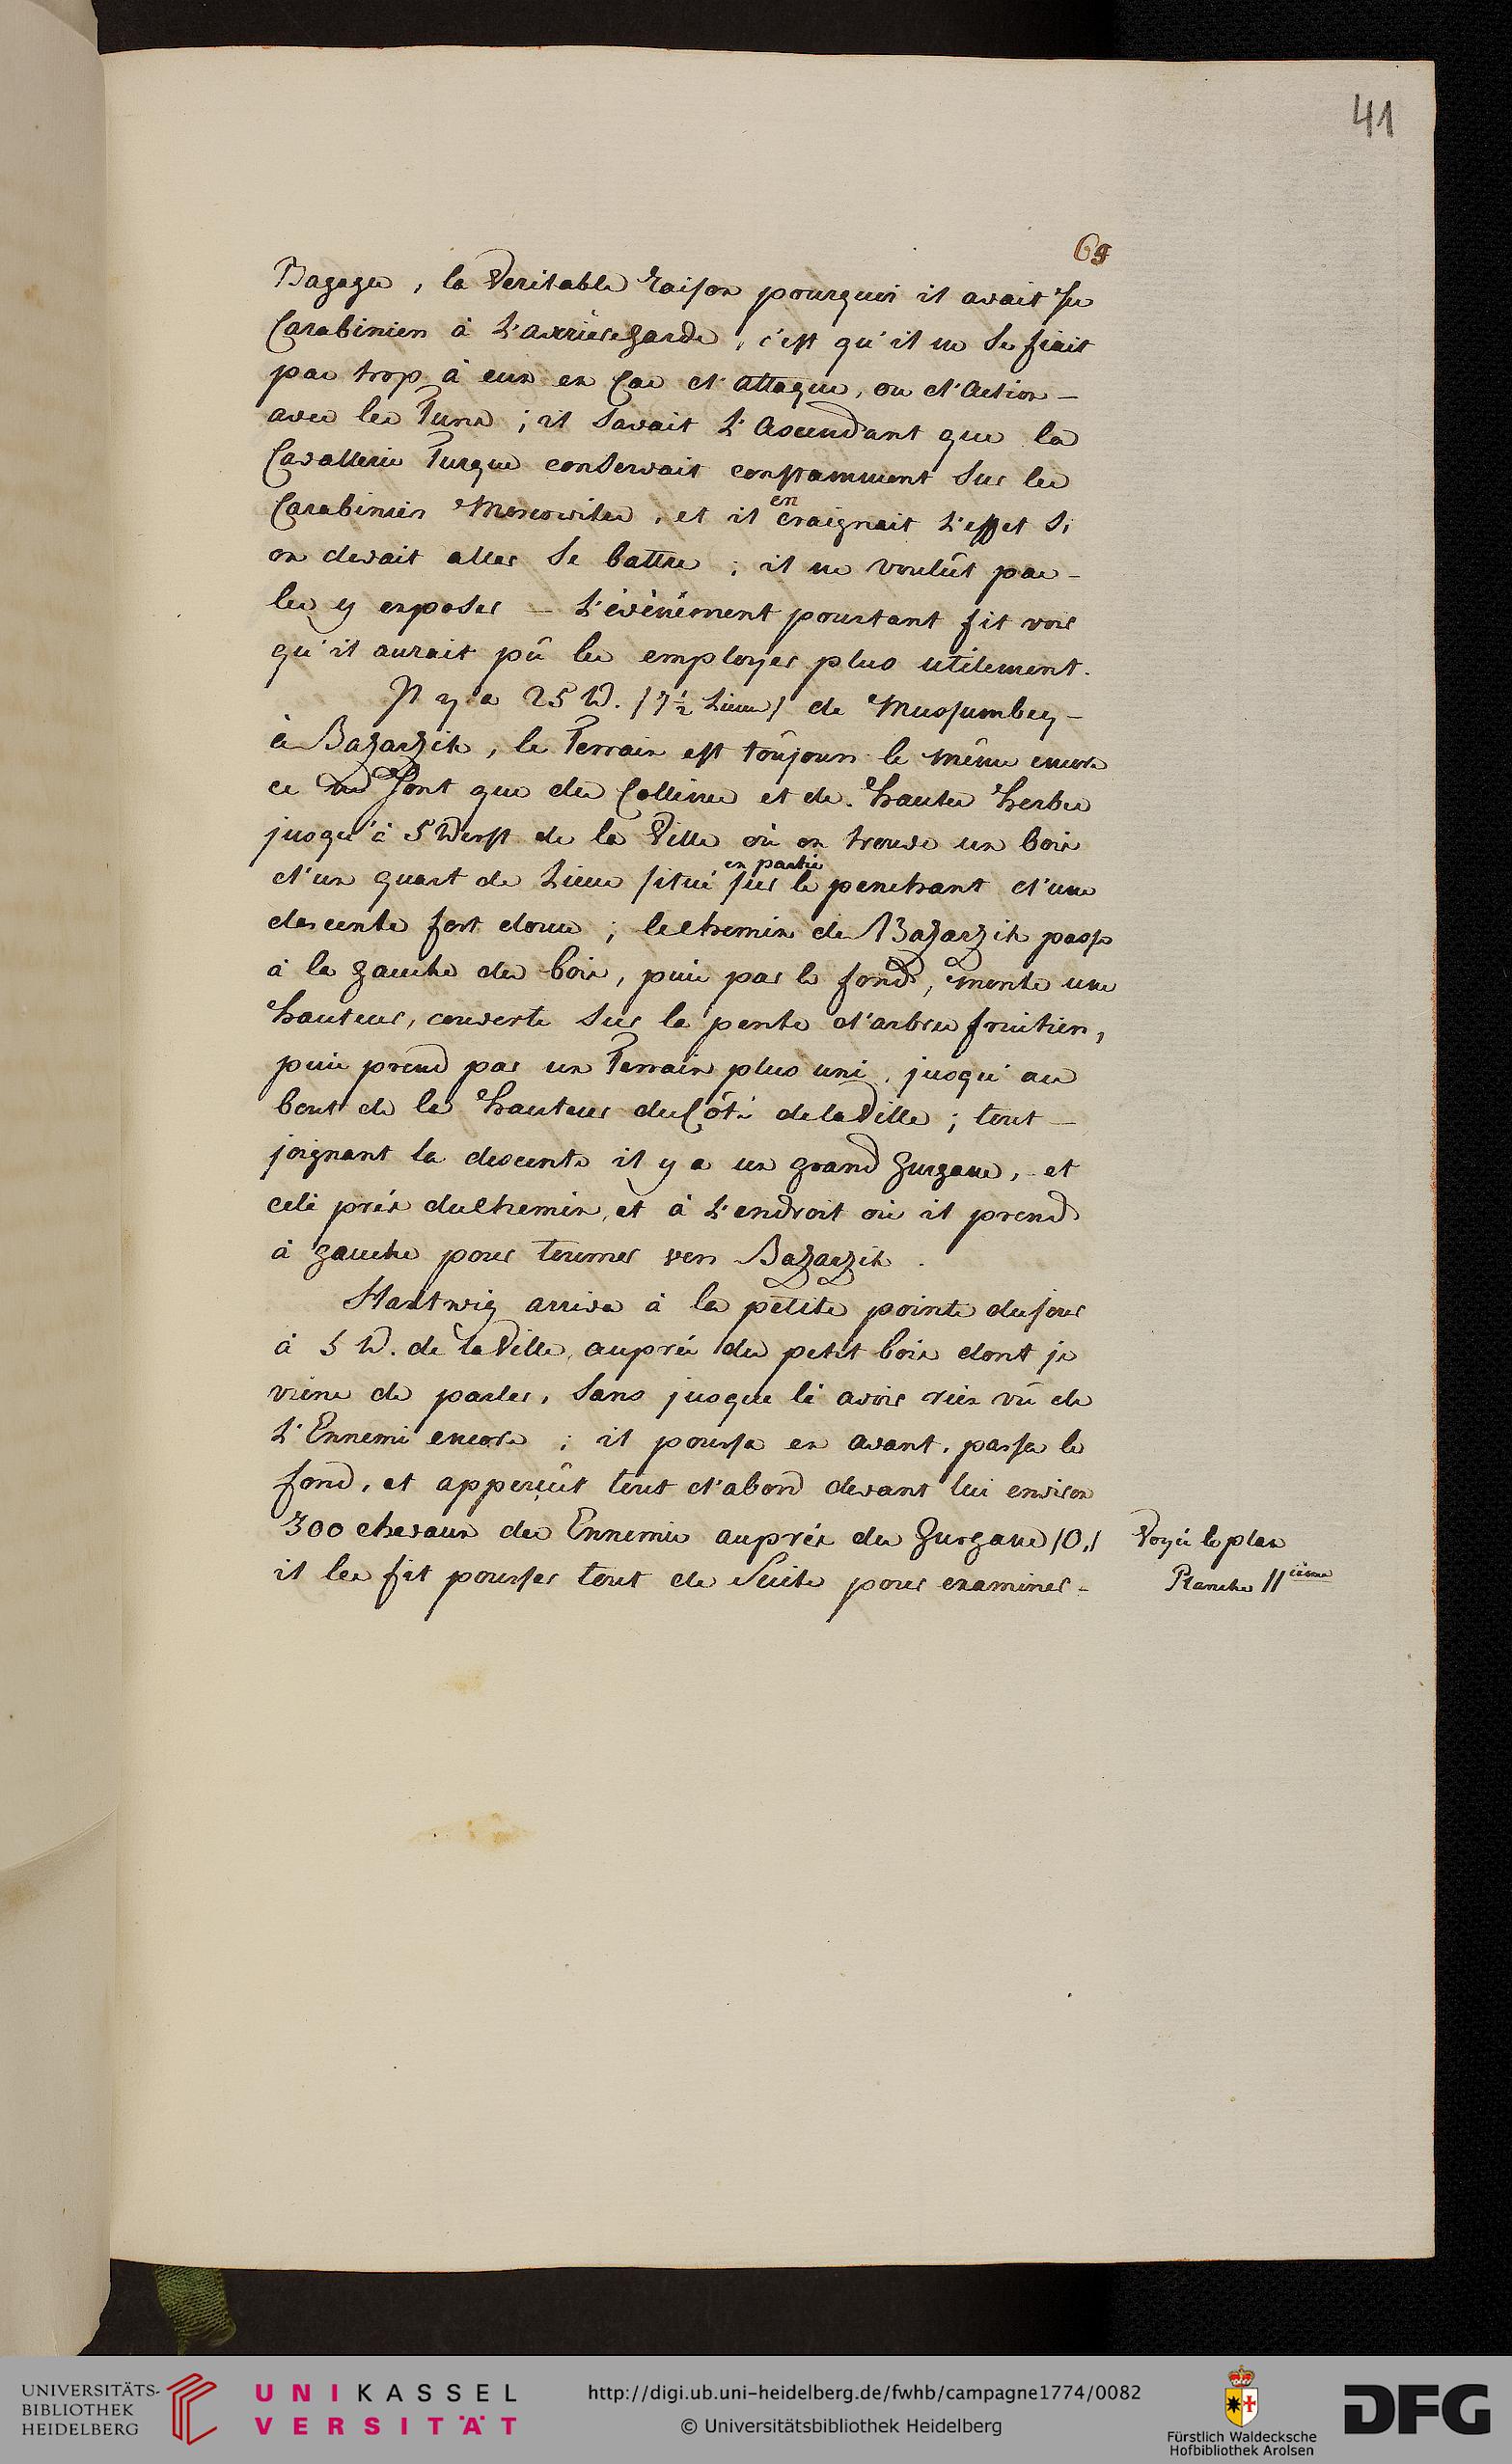 41
69
Bagages, la Veritable raison pourquoi il avait ses
Carabiniers à L'arrièregarde, c'est qu'il ne se fiait
pas trop à eux en Cas d'attaque, ou d'action -
avec les Turcs ; il savait L'Ascendant que la
Cavallerie Turque conservait constamment sur les
Carabiniers Moscowites, et il en craignait L'effet si
on devait aller se battre ; il ne voulût pas -
les y exposer - L'évènement pourtant fit voir
qu'il aurait pû les employer plus utilement.
Il y a 25 W. /7½ Lieues/ de Mussumbey -
à Bazarzik, le Terrain est toûjours le même encore
ce ne sont que des Collines et de hautes herbes
jusqu'à 5 Werst de la Ville où on trouve un bois
d'un quart de Lieue situé en partie sur le penchant d'une
descente fort douce ; le chemin de Bazarzik passe
à la gauche du bois, puis par le fond, monte une
hauteur, couverte sur la pente d'arbres fruitiers,
puis prend par un Terrain plus uni, jusqu'au
bout de la hauteur du Côté de la Ville ; tout -
joignant la descente il y a un grand Gurgane, et
celà près du chemin, et à L'endroit où il prend
à gauche pour tourner vers Bazarzik.
Hartwig arriva à la petite pointe du jour
à 5 W. de la Ville, auprès du petit bois dont je
viens de parler, sans jusque là avoir rien vû de
L'Ennemi encore ; il poussa en avant, passa le
fond, et apperçût tout d'abord devant lui environ
300 chevaux des Ennemis auprès du Gurgane /O./
il les fit pousser tout de Suite pour examiner -
Voyés le plan
Planche II ième
UNIVERSITÄTS-
BIBLIOTHEK
HEIDELBERG
UNIKASSEL
VERSITÄT
http://digi.ub.uni-heidelberg.de/fwhb/campagne1774/0082
© Universitätsbibliothek Heidelberg
Fürstlich Waldecksche
Hofbibliothek Arolsen
DFG